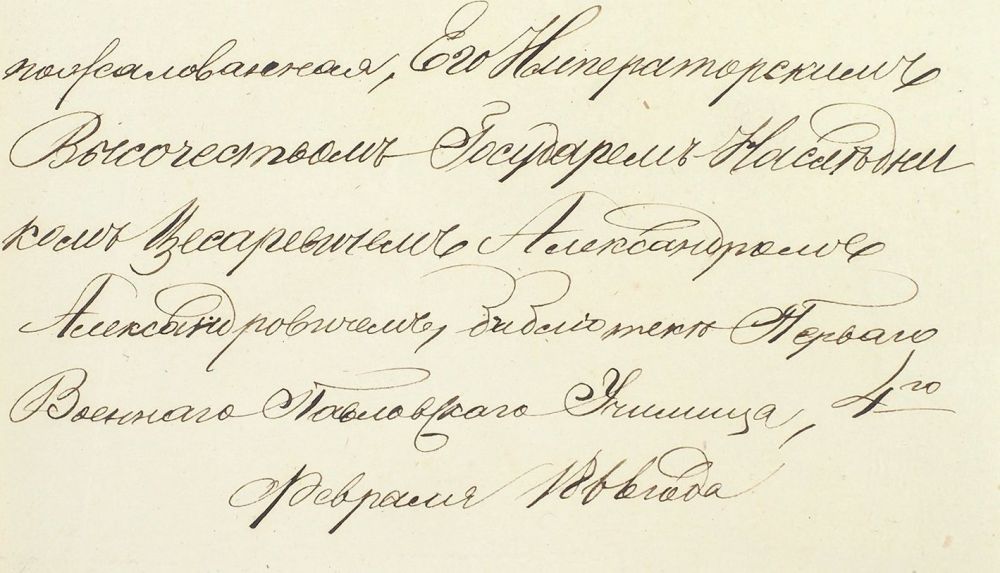 пожалованная, Его Императорскимъ
Высочествомъ Государемъ Наслѣдни
комъ Цесаревичемъ Александромъ
Александровичемъ, библіотекѣ Перваго
Военнаго Павловскаго Училища, 4го
Февраля 1866 года